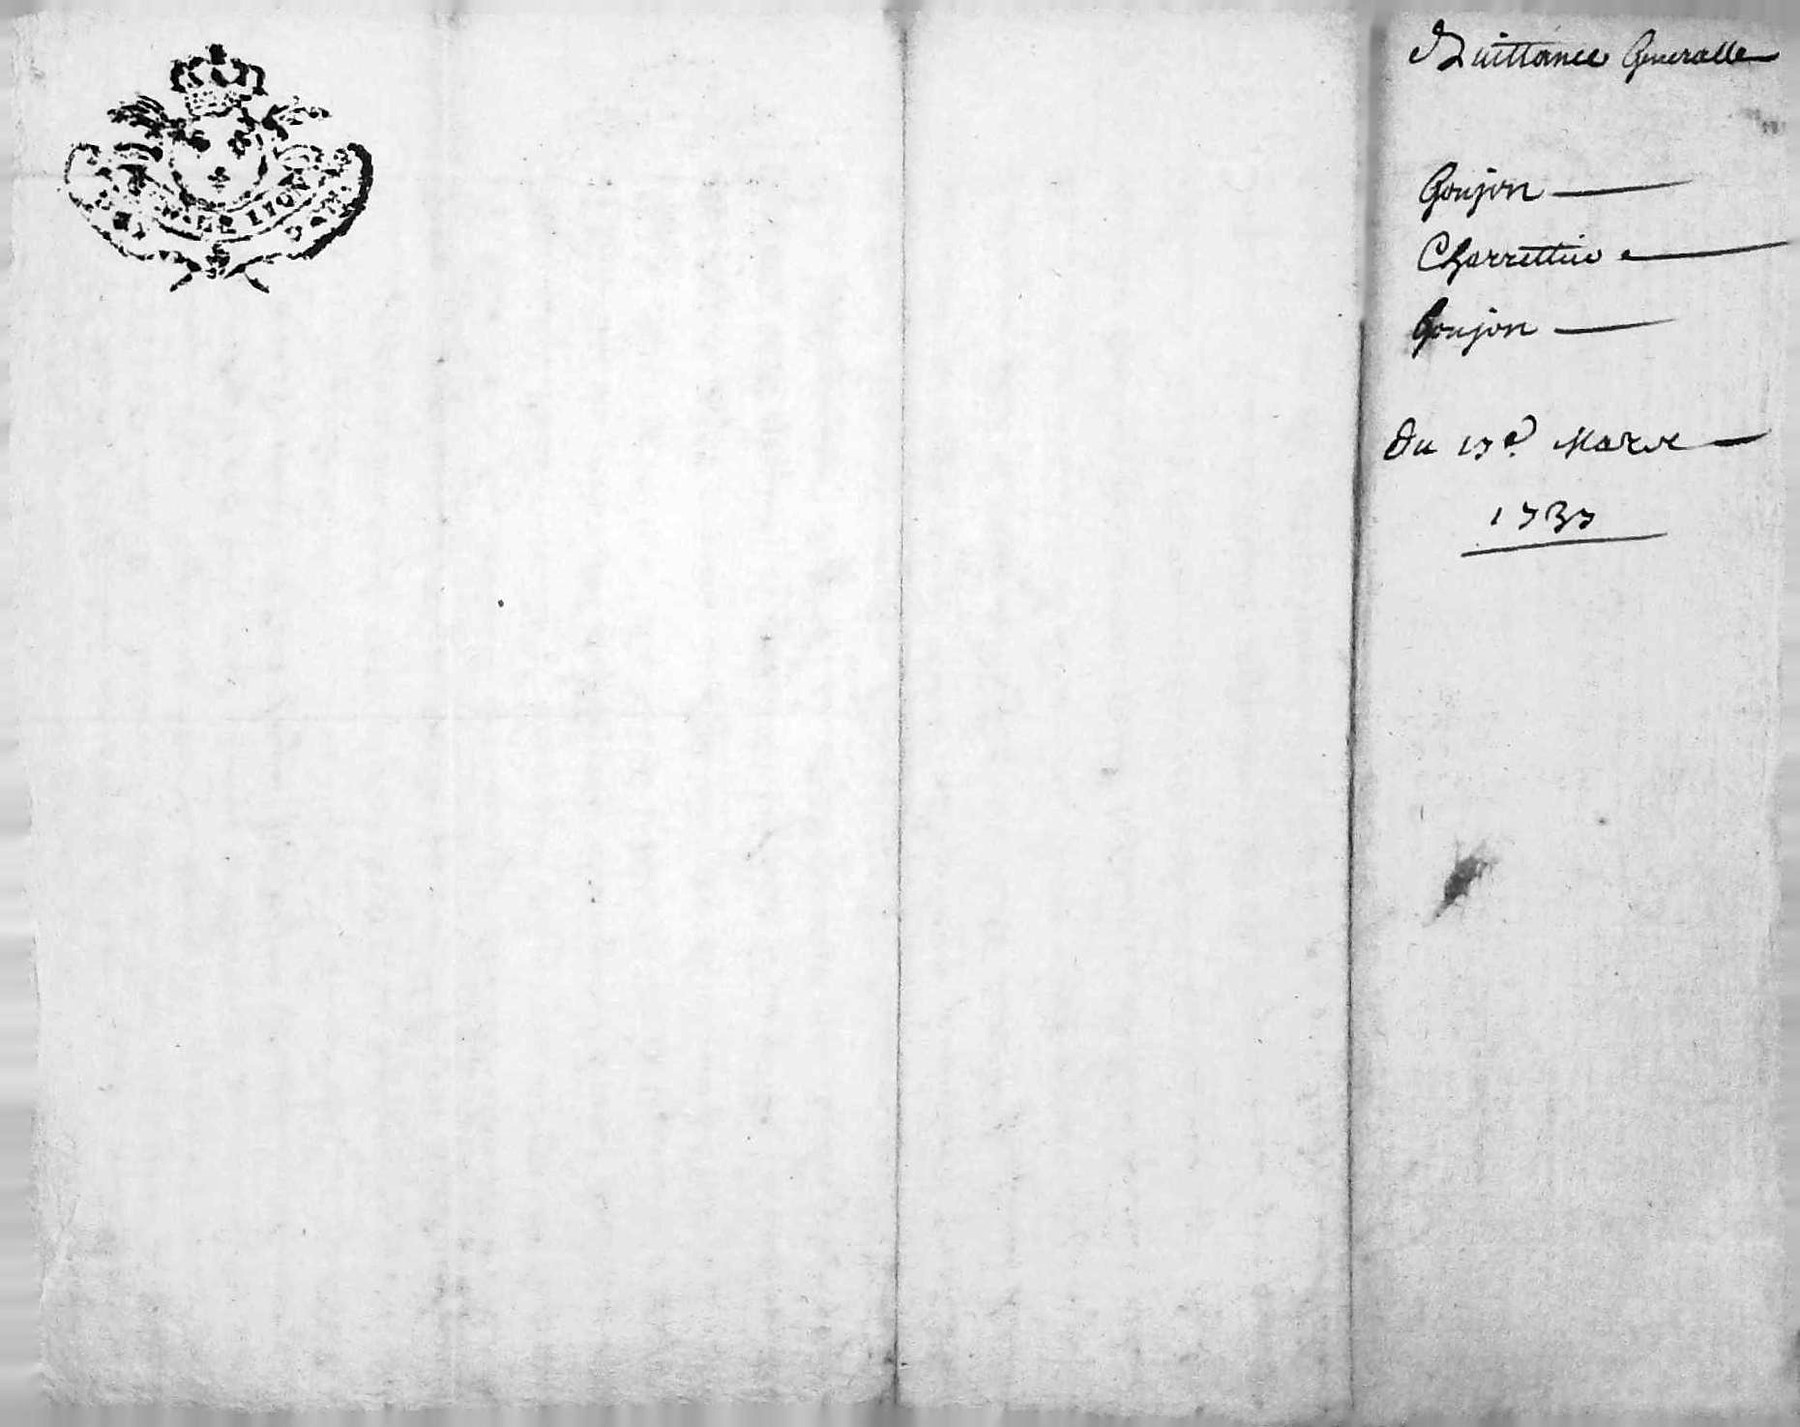 Quittance Generalle
Goujon
Charrettier
Goujon
Du 17e Mars
1737